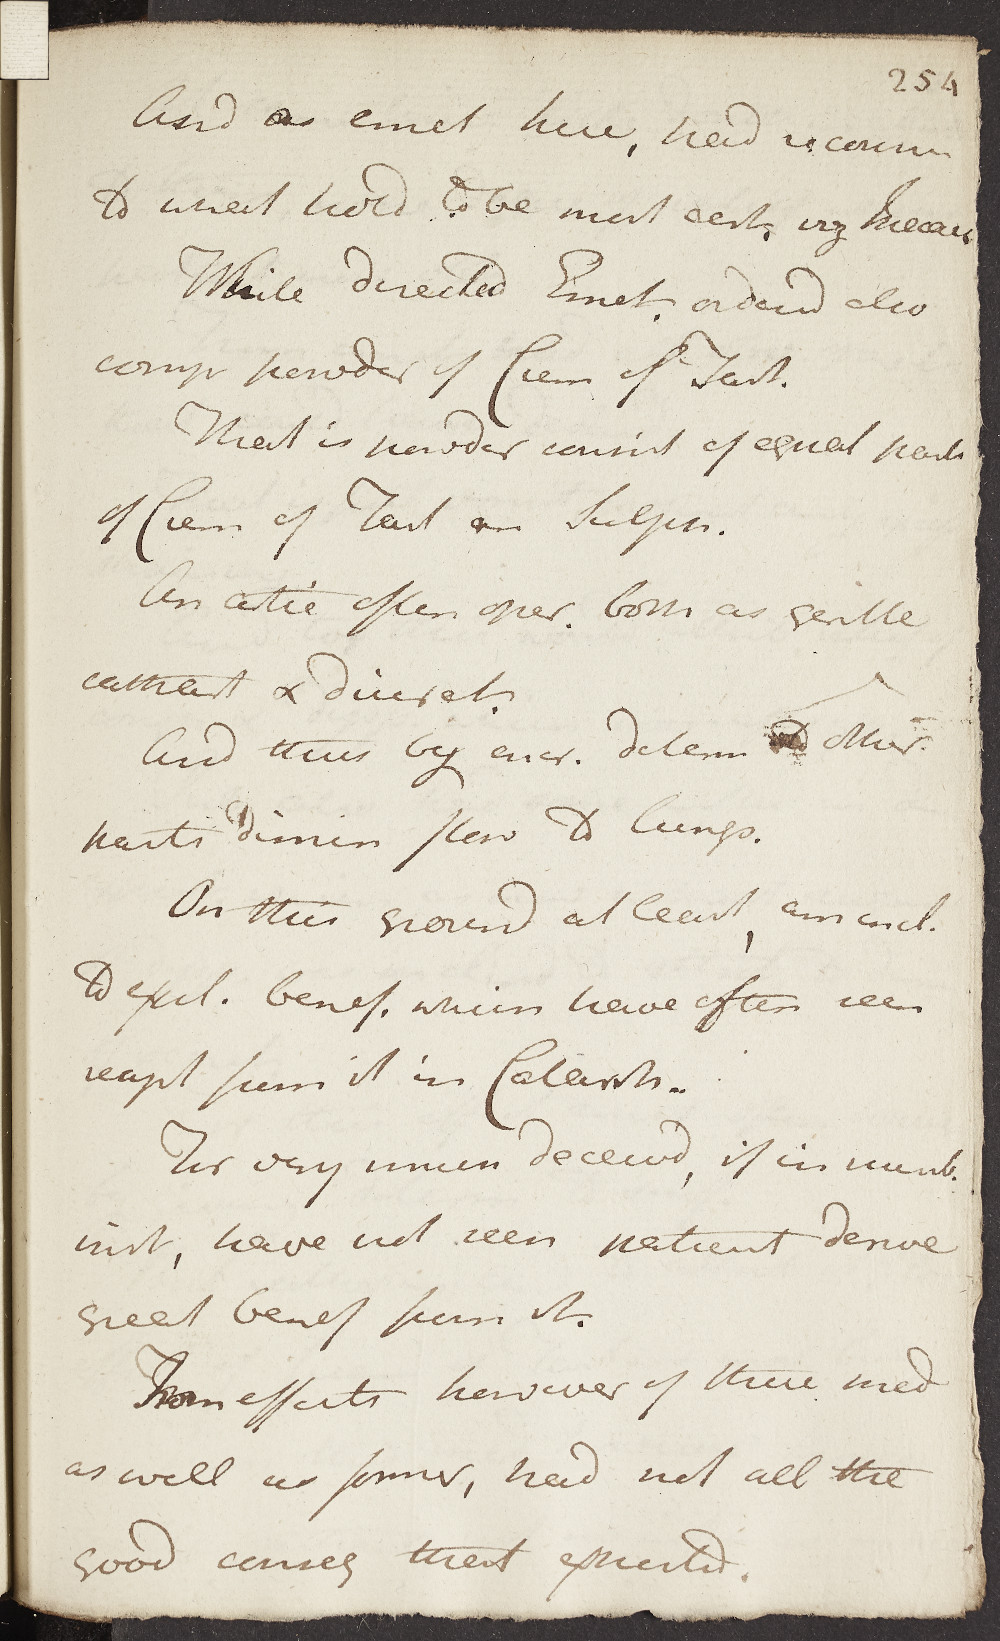 254
And as emet here, had recour
to what hold to be most cert. viz Ipecac.
While directed Emet. orderd also
comp powder of Crem of Tart.
That is powder consist of equal parts
of Crem of Tart an Sulph.
An artic often oper. both as gentle
cathart & diuret.
And thus by encr. determ to other
parts dimin flow to lungs.
On this ground at least, am incl.
to expl. benef. which have often seen
reapt from it in Catarrh.
For very much deceivd, if in numb.
inst, have not seen patient derive
great benef from it.
From effects however of these med
as well as former, had not all the
good conseq that expected.